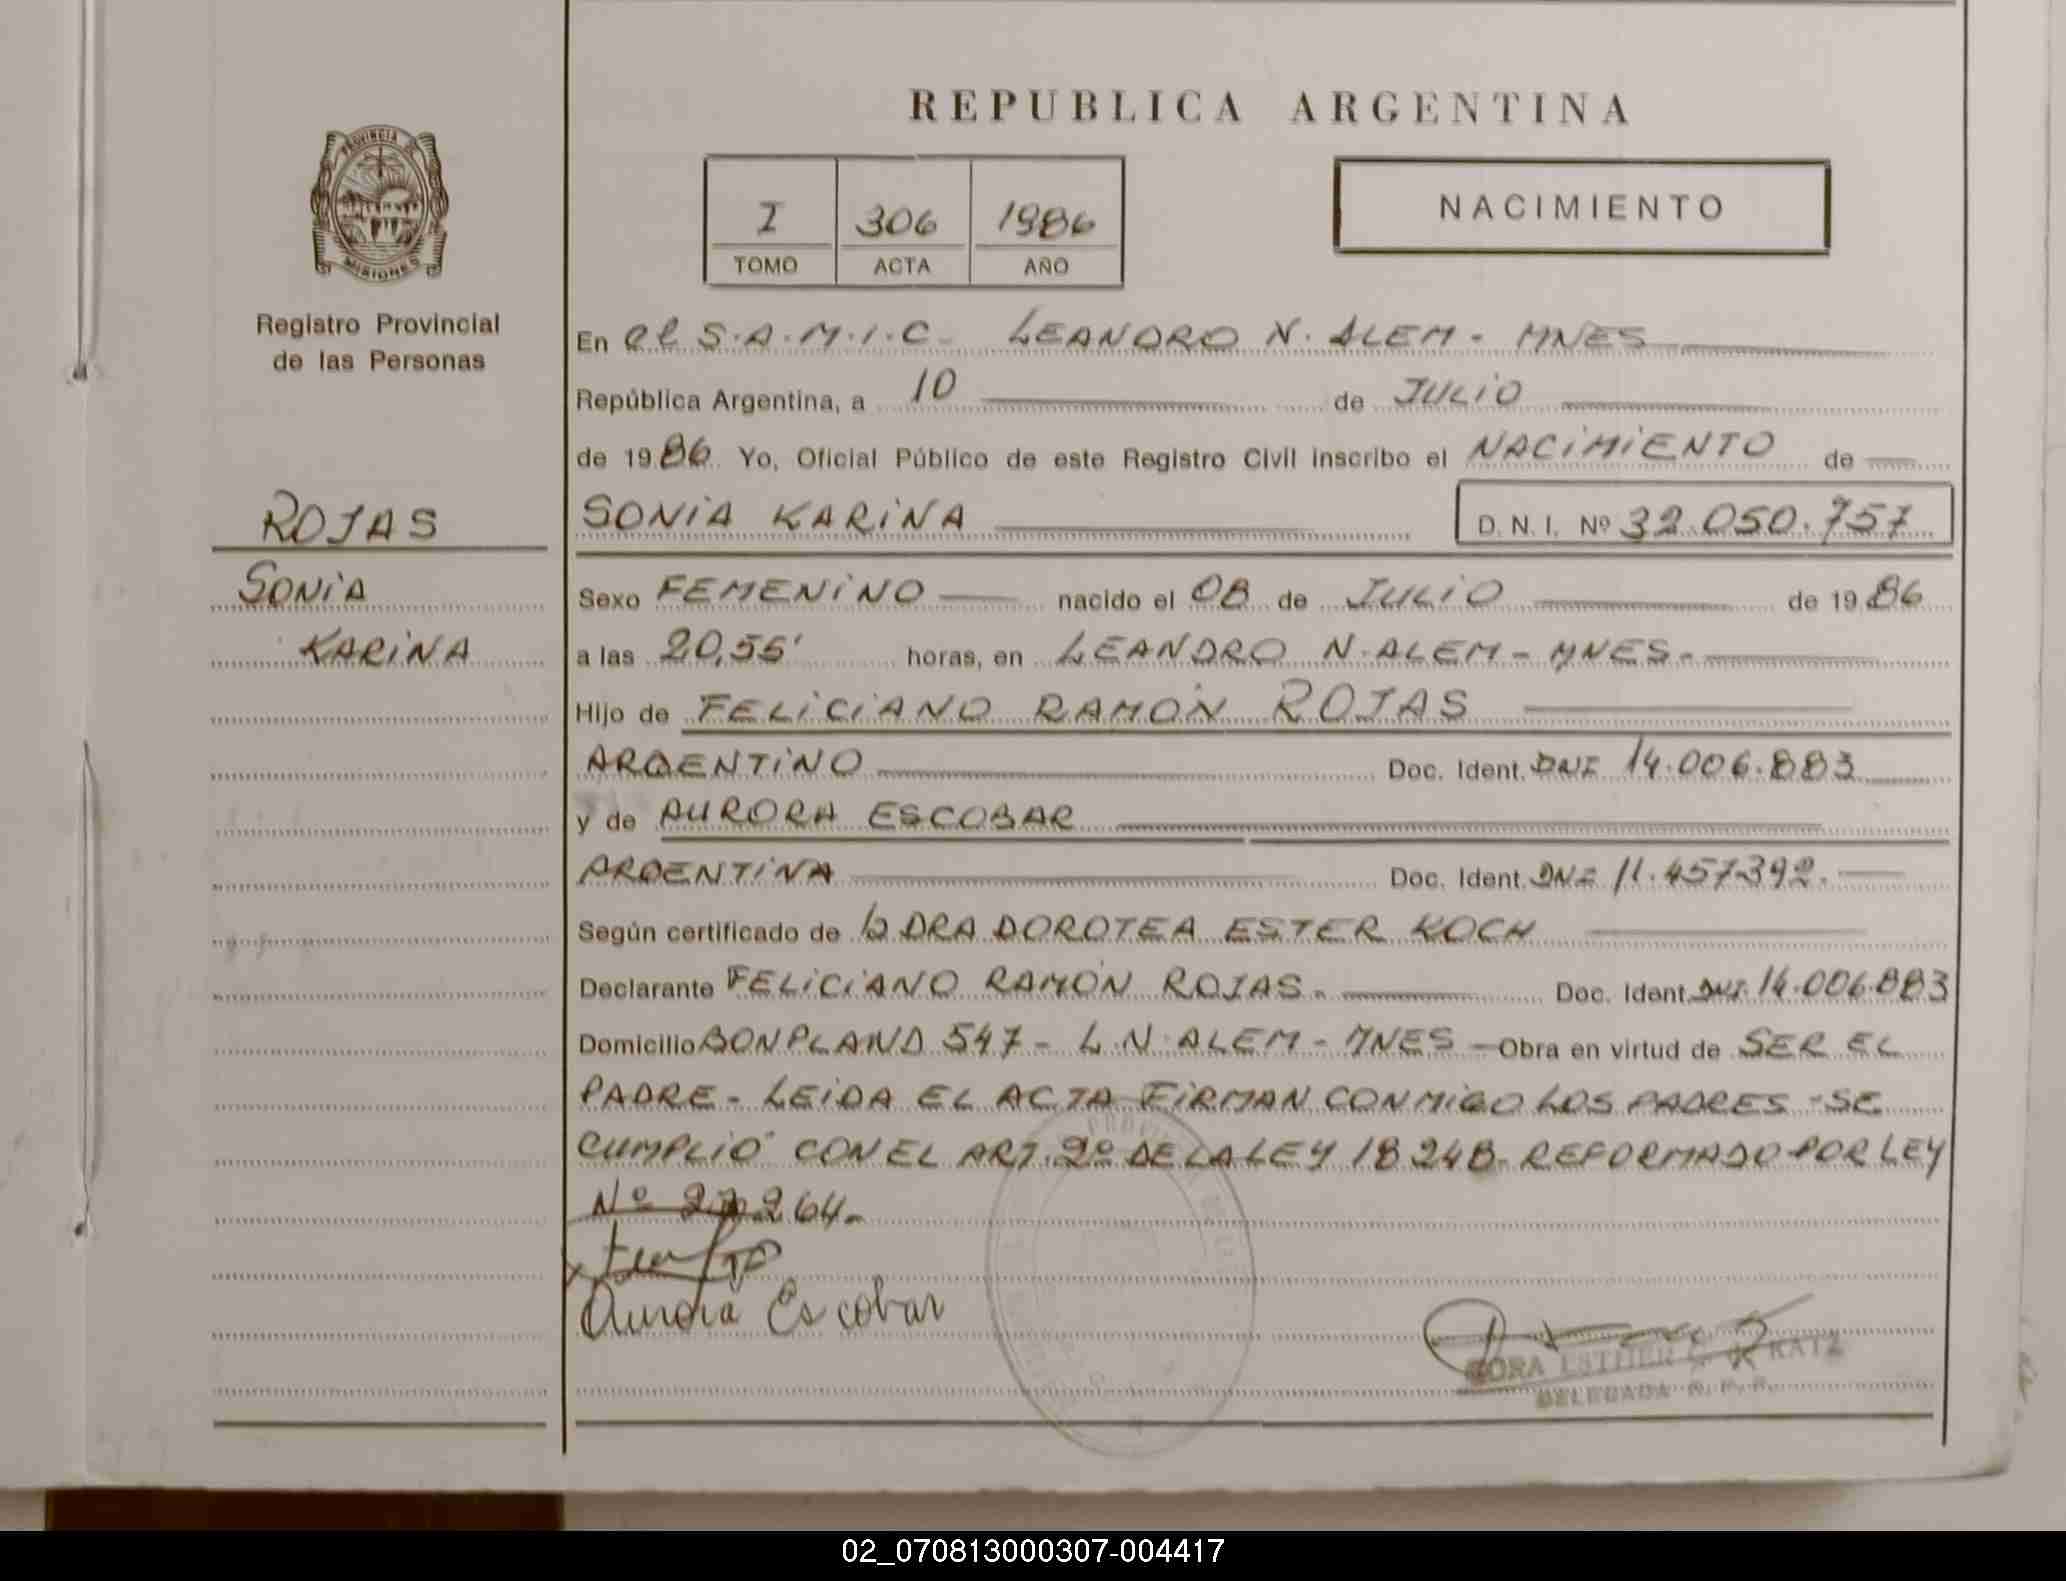 REPUBLICA ARGENTINA
PROVINCIA DE
MISIONES
Registro Provincial
de las Personas
I 306 1986
TOMO ACTA AÑO
NACIMIENTO
En el S.A.M.I.C. LEANDRO N. ALEM - MNES
República Argentina, a 10 de JULIO
de 1986 Yo, Oficial Público de este Registro Civil inscribo el NACIMIENTO de
ROJAS
SONIA
KARINA
SONIA KARINA D. N. I. Nº 32.050.757
Sexo FEMENINO nacido el 08 de JULIO de 1986
a las 20,55' horas, en LEANDRO N. ALEM - MNES.-
Hijo de FELICIANO RAMÓN ROJAS
ARGENTINO Doc. Ident. DNI 14.006.883
y de AURORA ESCOBAR
ARGENTINA Doc. Ident. DNI 11.457392.
Según certificado de la DRA DOROTEA ESTER KOCH
Declarante FELICIANO RAMÓN ROJAS.- Doc. Ident. DNI 14.006.883
Domicilio BONPLAND 547 - L.N. ALEM - MNES - Obra en virtud de SER EL
PADRE - LEIDA EL ACTA FIRMAN CONMIGO LOS PADRES - SE
CUMPLIÓ CON EL ART. 2º DE LA LEY 18248 - REFORMADO POR LEY
Nº 264.-
Aurora Escobar
ESTHER KATZ
DELEGADA R. P. P.
02_070813000307-004417